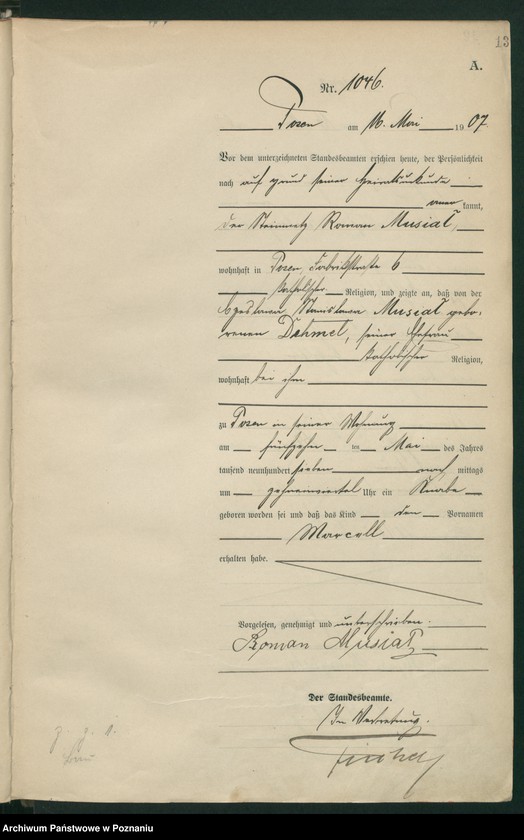 13
A.
Nr. 1046.
Posen am 16. Mai 1907
Vor dem unterzeichneten Standesbeamten erschien heute, der Persönlichkeit
nach auf Grund seiner Heiratsurkunde
aner kannt,
der Steinmetz Roman Musiał,
wohnhaft in Posen, Fabrikstraße 6
katholischer Religion, und zeigte an, daß von der
Czeslawa Stanislawa Musiał gebo-
renen Dahmel, seiner Ehefrau
katholischer Religion,
wohnhaft bei ihm
zu Posen in seiner Wohnung
am fünfzehn ten Mai des Jahres
tausend neunhundert sieben nach mittags
um zehneinviertel Uhr ein Knabe
geboren worden sei und daß das Kind den Vornamen
Marcell
erhalten habe.
Vorgelesen, genehmigt und unterschrieben.
Roman Musiał
Der Standesbeamte.
In Vertretung.
Archiwum Państwowe w Poznaniu